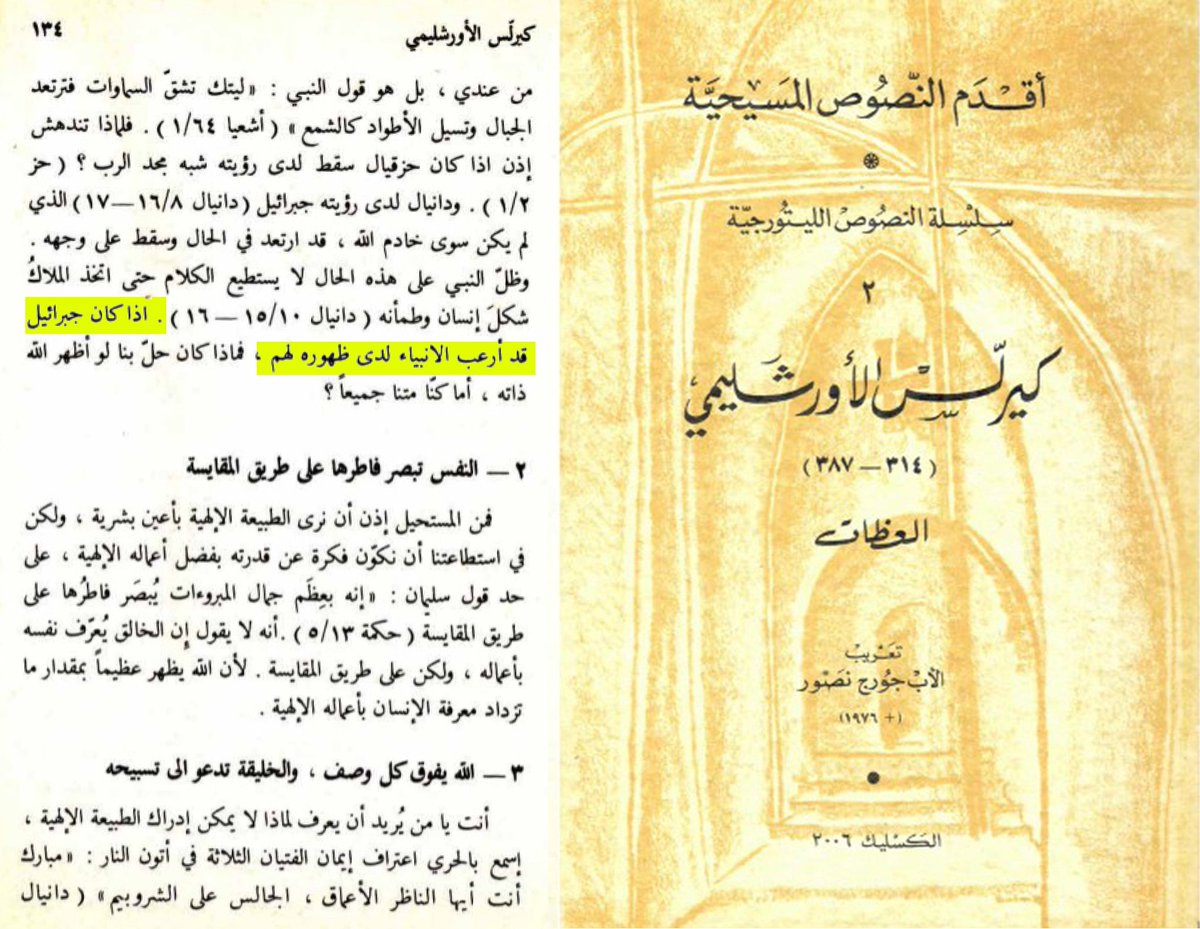 كيرلّس الأورشليمي
١٣٤
من عندي ، بل هو قول النبي : «ليتك تشقّ السماوات فترتعد
الجبال وتسيل الأطواد كالشمع» ( أشعيا ١/٦٤ ) . فلماذا تندهش
إذن اذا كان حزقيال سقط لدى رؤيته شبه مجد الرب ؟ ( حز
١/٢ ) . ودانيال لدى رؤيته جبرائيل (دانيال ١٦/٨—١٧) الذي
لم يكن سوى خادم الله ، قد ارتعد في الحال وسقط على وجهه .
وظلّ النبي على هذه الحال لا يستطيع الكلام حتى اتخذ الملاكُ
شكلَ إنسان وطمأنه ( دانيال ١٥/١٠ — ١٦ ) . اذا كان جبرائيل
قد أرعب الانبياء لدى ظهوره لهم ، فماذا كان حلّ بنا لو أظهر الله
ذاته ، أما كنّا متنا جميعاً ؟
٢ — النفس تبصر فاطرها على طريق المقايسة
فمن المستحيل إذن أن نرى الطبيعة الإلهية بأعين بشرية ، ولكن
في استطاعتنا أن نكوّن فكرة عن قدرته بفضل أعماله الإلهية ، على
حد قول سليمان : «إنه بعِظَم جمال المبروءات يُبصَر فاطرُها على
طريق المقايسة ( حكمة ٥/١٣ ) .أنه لا يقول إن الخالق يُعرّف نفسه
بأعماله ، ولكن على طريق المقايسة . لأن الله يظهر عظيماً بمقدار ما
تزداد معرفة الإنسان بأعماله الإلهية .
٣ — الله يفوق كل وصف ، والخليقة تدعو الى تسبيحه
أنت يا من يُريد أن يعرف لماذا لا يمكن إدراك الطبيعة الإلهية ،
إسمع بالحري اعتراف إيمان الفتيان الثلاثة في أتون النار : «مبارك
أنت أيها الناظر الأعماق ، الجالس على الشروبيم» ( دانيال
أقدم النّصوص المسيحيّة
سلسلة النصوص الليتورجيّة
٢
كيرلّس الأورشليمي
( ٣١٤ — ٣٨٧ )
العظات
تعريب
الأب جورج نصّور
(+ ١٩٧٦)
الكسليك ٢٠٠٦